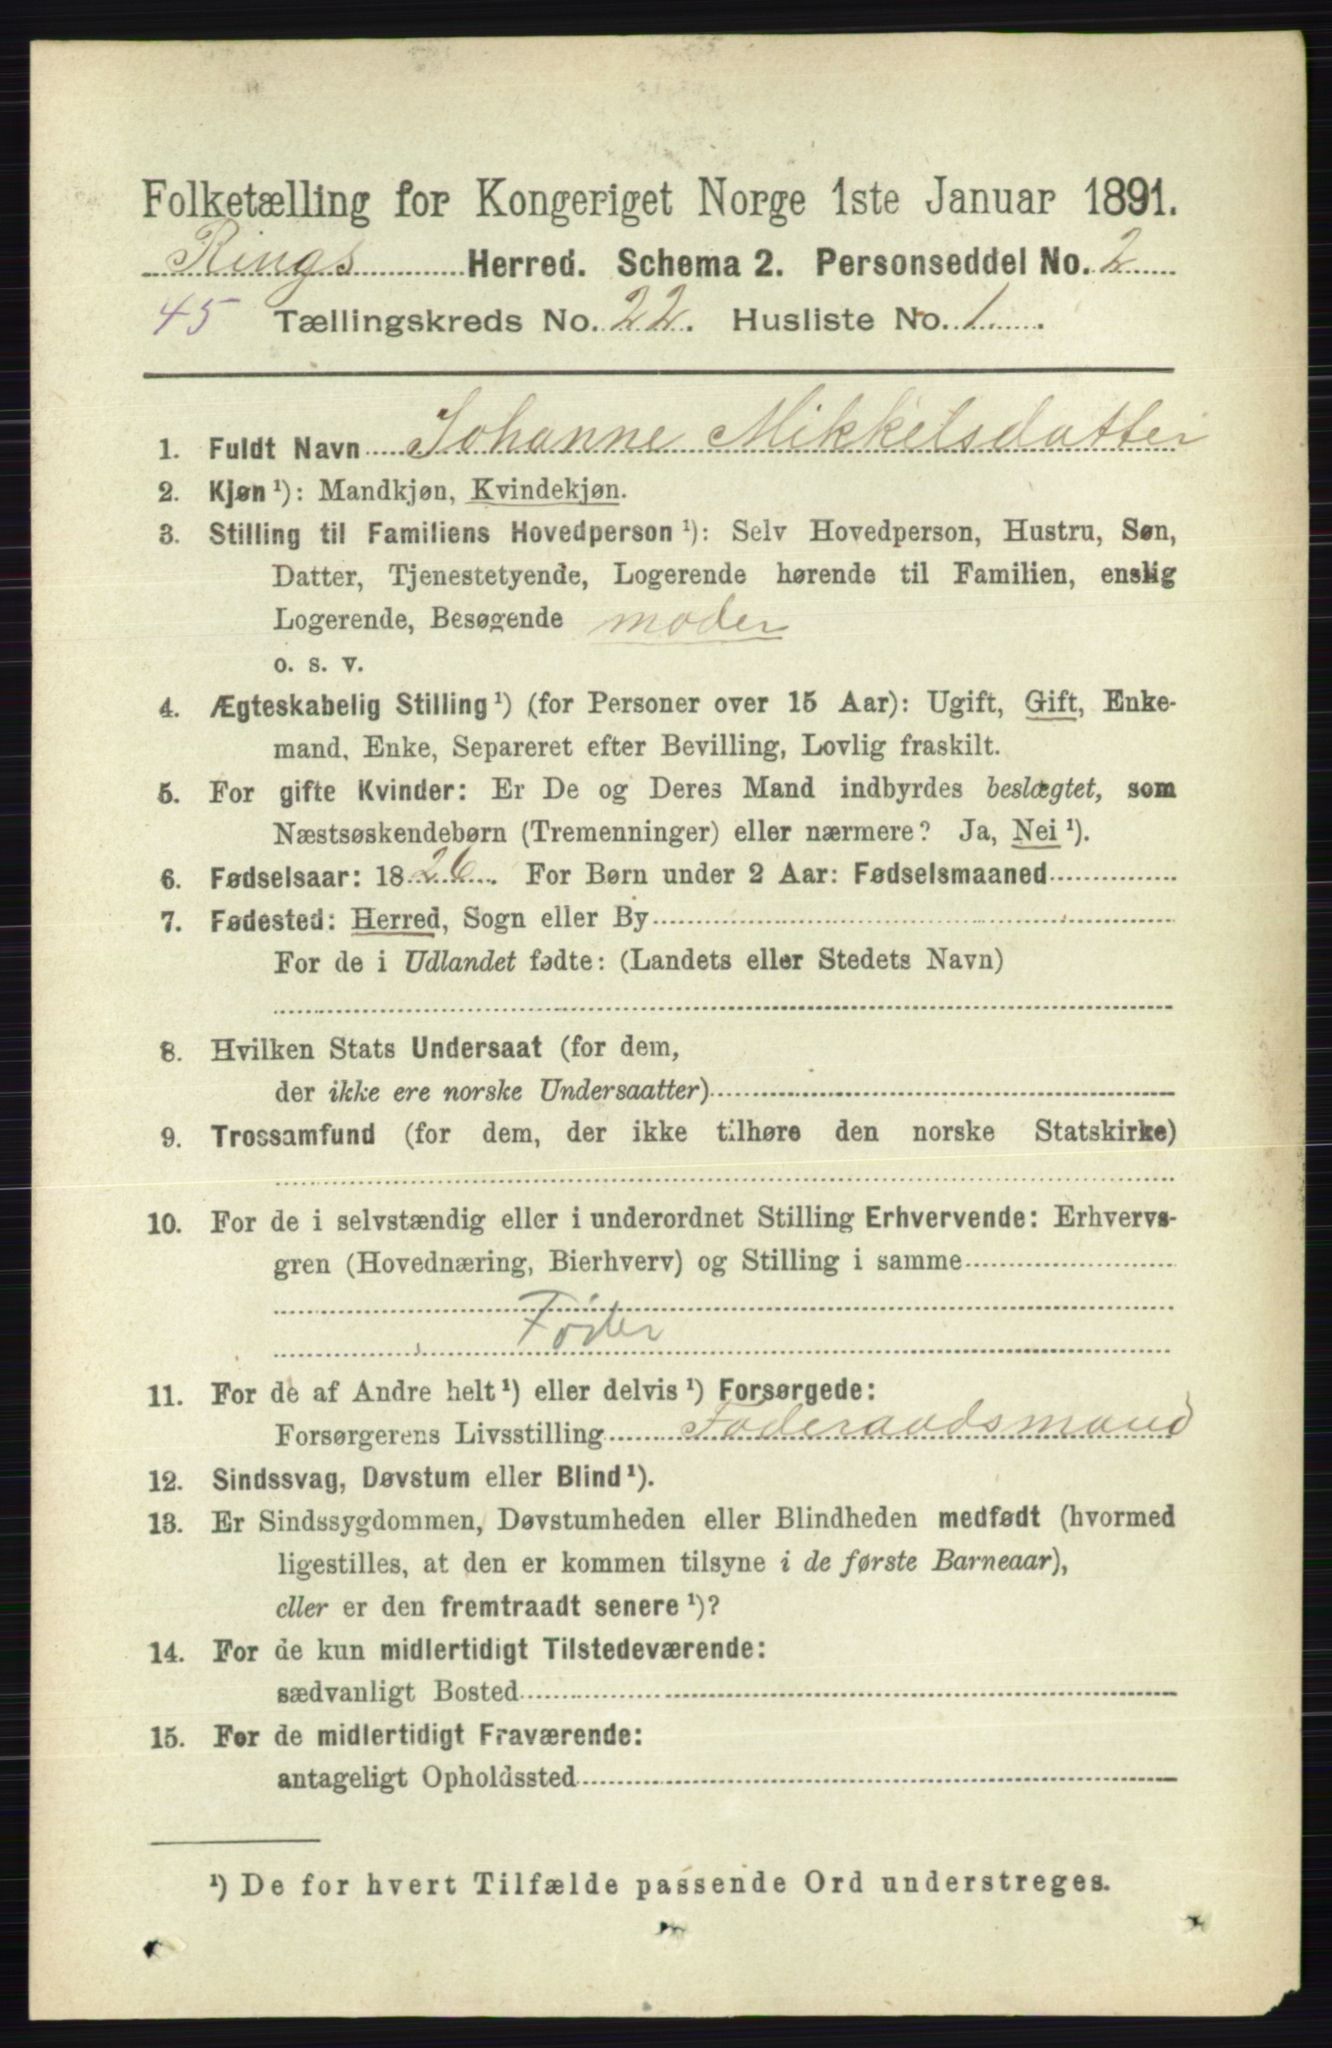 Folketælling for Kongeriget Norge 1ste Januar 1891.
Rings Herred. Schema 2. Personseddel No. 2
45 Tællingskreds No. 22. Husliste No. 1
1. Fuldt Navn Johanne Mikkelsdatter
2. Kjøn ¹): Mandkjøn, Kvindekjøn.
3. Stilling til Familiens Hovedperson ¹): Selv Hovedperson, Hustru, Søn,
Datter, Tjenestetyende, Logerende hørende til Familien, enslig
Logerende, Besøgende moder
o. s. v.
4. Ægteskabelig Stilling ¹) (for Personer over 15 Aar): Ugift, Gift, Enke-
mand, Enke, Separeret efter Bevilling, Lovlig fraskilt.
5. For gifte Kvinder: Er De og Deres Mand indbyrdes beslægtet, som
Næstsøskendebørn (Tremenninger) eller nærmere? Ja, Nei ¹).
6. Fødselsaar: 1826. For Børn under 2 Aar: Fødselsmaaned
7. Fødested: Herred, Sogn eller By
For de i Udlandet fødte: (Landets eller Stedets Navn)
8. Hvilken Stats Undersaat (for dem,
der ikke ere norske Undersaatter)
9. Trossamfund (for dem, der ikke tilhøre den norske Statskirke)
10. For de i selvstændig eller i underordnet Stilling Erhvervende: Erhvervs-
gren (Hovednæring, Bierhverv) og Stilling i samme
Føder
11. For de af Andre helt ¹) eller delvis ¹) Forsørgede:
Forsørgerens Livsstilling Føderaadsmand
12. Sindssvag, Døvstum eller Blind ¹).
13. Er Sindssygdommen, Døvstumheden eller Blindheden medfødt (hvormed
ligestilles, at den er kommen tilsyne i de første Barneaar),
eller er den fremtraadt senere ¹)?
14. For de kun midlertidigt Tilstedeværende:
sædvanligt Bosted
15. For de midlertidigt Fraværende:
antageligt Opholdssted
¹) De for hvert Tilfælde passende Ord understreges.